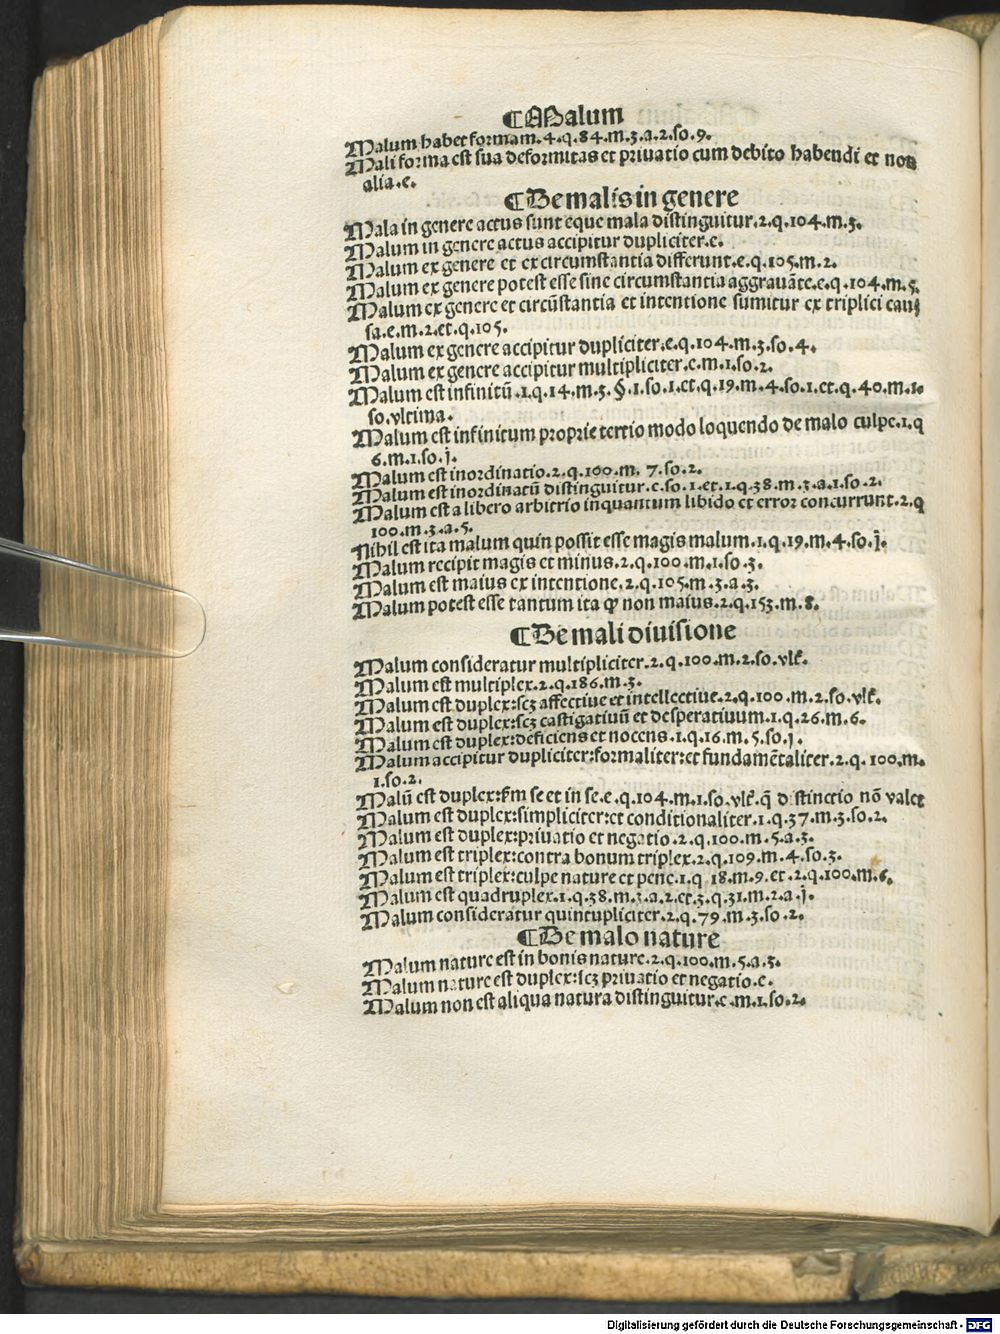 ¶Malum
Malum habet formam.4.q.84.m.3.a.2.so.9.
Mali forma est sua deformitas et priuatio cum debito habendi et non
alia.e.
¶De malis in genere
Mala in genere actus sunt eque mala distinguitur.2.q.104.m.3.
Malum in genere actus accipitur dupliciter.e.
Malum ex genere et ex circumstantia differunt.e.q.105.m.2.
Malum ex genere potest esse sine circumstantia aggrauāte.e.q.104.m.5.
Malum ex genere et circūstantia et intentione sumitur ex triplici cau
sa.e.m.2.et.q.105.
Malum ex genere accipitur dupliciter.e.q.104.m.3.so.4.
Malum ex genere accipitur multipliciter.e.m.1.so.2.
Malum est infinitū.1.q.14.m.3.§.1.so.1.et.q.19.m.4.so.1.et.q.40.m.1.
so.vltima.
Malum est infinitum proprie tertio modo loquendo de malo culpe.1.q
6.m.1.so.j.
Malum est inordinatio.2.q.100.m.7.so.2.
Malum est inordinatū distinguitur.e.so.1.et.1.q.38.m.3.a.1.so.2.
Malum est a libero arbitrio inquantum libido et error concurrunt.2.q
100.m.3.a.5.
Nihil est ita malum quin possit esse magis malum.1.q.19.m.4.so.j.
Malum recipit magis et minus.2.q.100.m.1.so.3.
Malum est maius ex intentione.2.q.105.m.3.a.3.
Malum potest esse tantum ita ꝙ non maius.2.q.153.m.8.
¶De mali diuisione
Malum consideratur multipliciter.2.q.100.m.2.so.vlt̄.
Malum est multiplex.2.q.186.m.3.
Malum est duplex:scꝫ affectiue et intellectiue.2.q.100.m.2.so.vlt̄.
Malum est duplex:scꝫ castigatiuū et desperatiuum.1.q.26.m.6.
Malum est duplex:deficiens et nocens.1.q.16.m.5.so.j.
Malum accipitur dupliciter:formaliter:et fundamētaliter.2.q.100.m.
1.so.2.
Malū est duplex:ẜm se et in se.e.q.104.m.1.so.vlt̄.q̄ distinctio nō valet
Malum est duplex:simpliciter:et conditionaliter.1.q.37.m.3.so.2.
Malum est duplex:priuatio et negatio.2.q.100.m.5.a.3.
Malum est triplex:contra bonum triplex.2.q.109.m.4.so.3.
Malum est triplex:culpe nature et pene.1.q 18.m.9.et.2.q.100.m.6.
Malum est quadruplex.1.q.38.m.3.a.2.et.3.q.31.m.2.a.j.
Malum consideratur quintupliciter.2.q.79.m.3.so.2.
¶De malo nature
Malum nature est in bonis nature.2.q.100.m.5.a.3.
Malum nature est duplex:scꝫ priuatio et negatio.e.
Malum non est aliqua natura distinguitur.e.m.1.so.2.
Digitalisierung gefördert durch die Deutsche Forschungsgemeinschaft - DFG